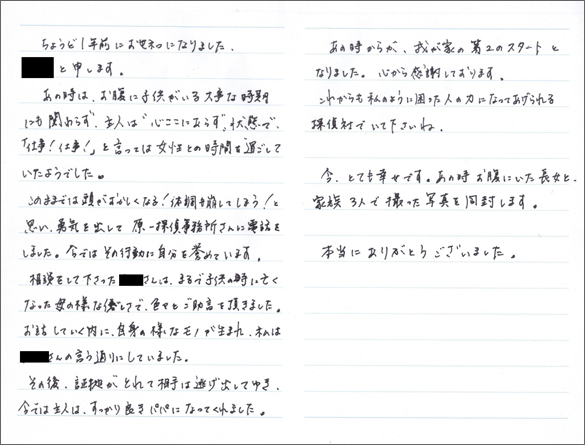 ちょうど1年前にお世話になりました、
と申します。
あの時は、お腹に子供がいる大事な時期
にも関わらず、主人は"心ここにあらず"状態で、
「仕事!仕事!」と言っては女性との時間を過ごして
いたようでした。
このままでは頭がおかしくなる!体調も崩してしまう!と
思い、勇気を出して原一探偵事務所さんに電話を
しました。今ではその行動に自分を誉めています。
相談をして下さった さんは、まるで子供の時に亡く
なった母の様な優しさで、色々とご助言を頂きました。
お話していく内に、自身の様なモノが生まれ、私は
さんの言う通りにしていました。
その後、証拠がとれて相手は逃げ出してゆき、
今では主人は、すっかり良きパパになってくれました。
あの時からが、我が家の第2のスタートと
なりました。心から感謝しております。
これからも私のように困った人の力になってあげられる
探偵社でいて下さいね。
今、とても幸せです。あの時お腹にいた長女と、
家族3人で撮った写真を同封します。
本当にありがとうございました。